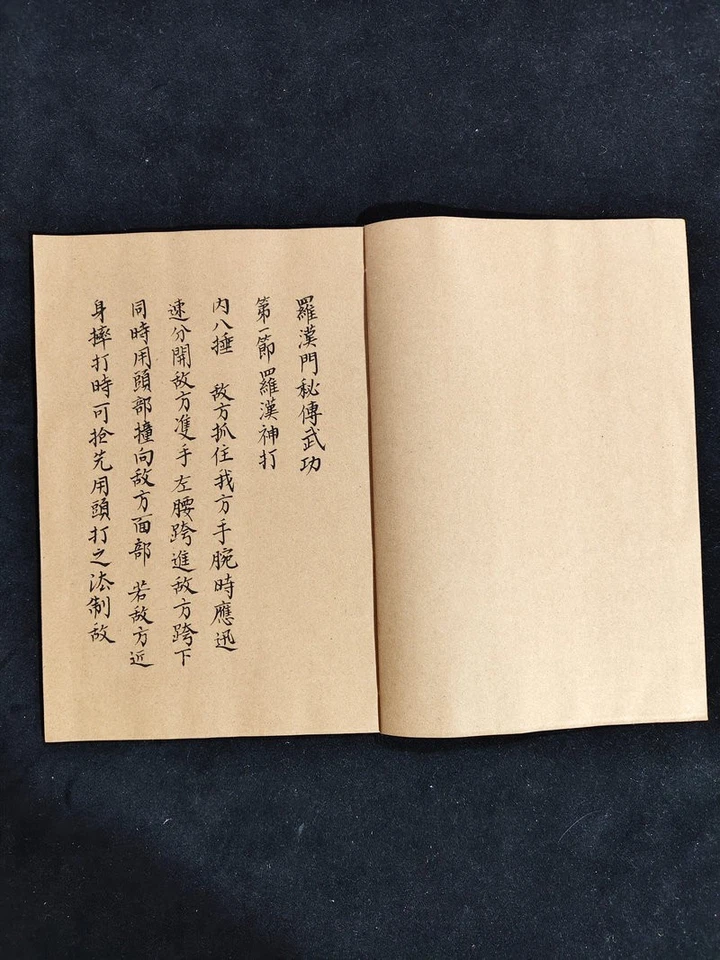 羅漢門秘傳武功
第一節羅漢神打
内八捶 敌方抓住我方手腕時應迅
速分開敌方隻手左腰跨進敌方跨下
同時用頭部撞向敌方面部 若敌方近
身摔打時可抢先用頭打之法制敌